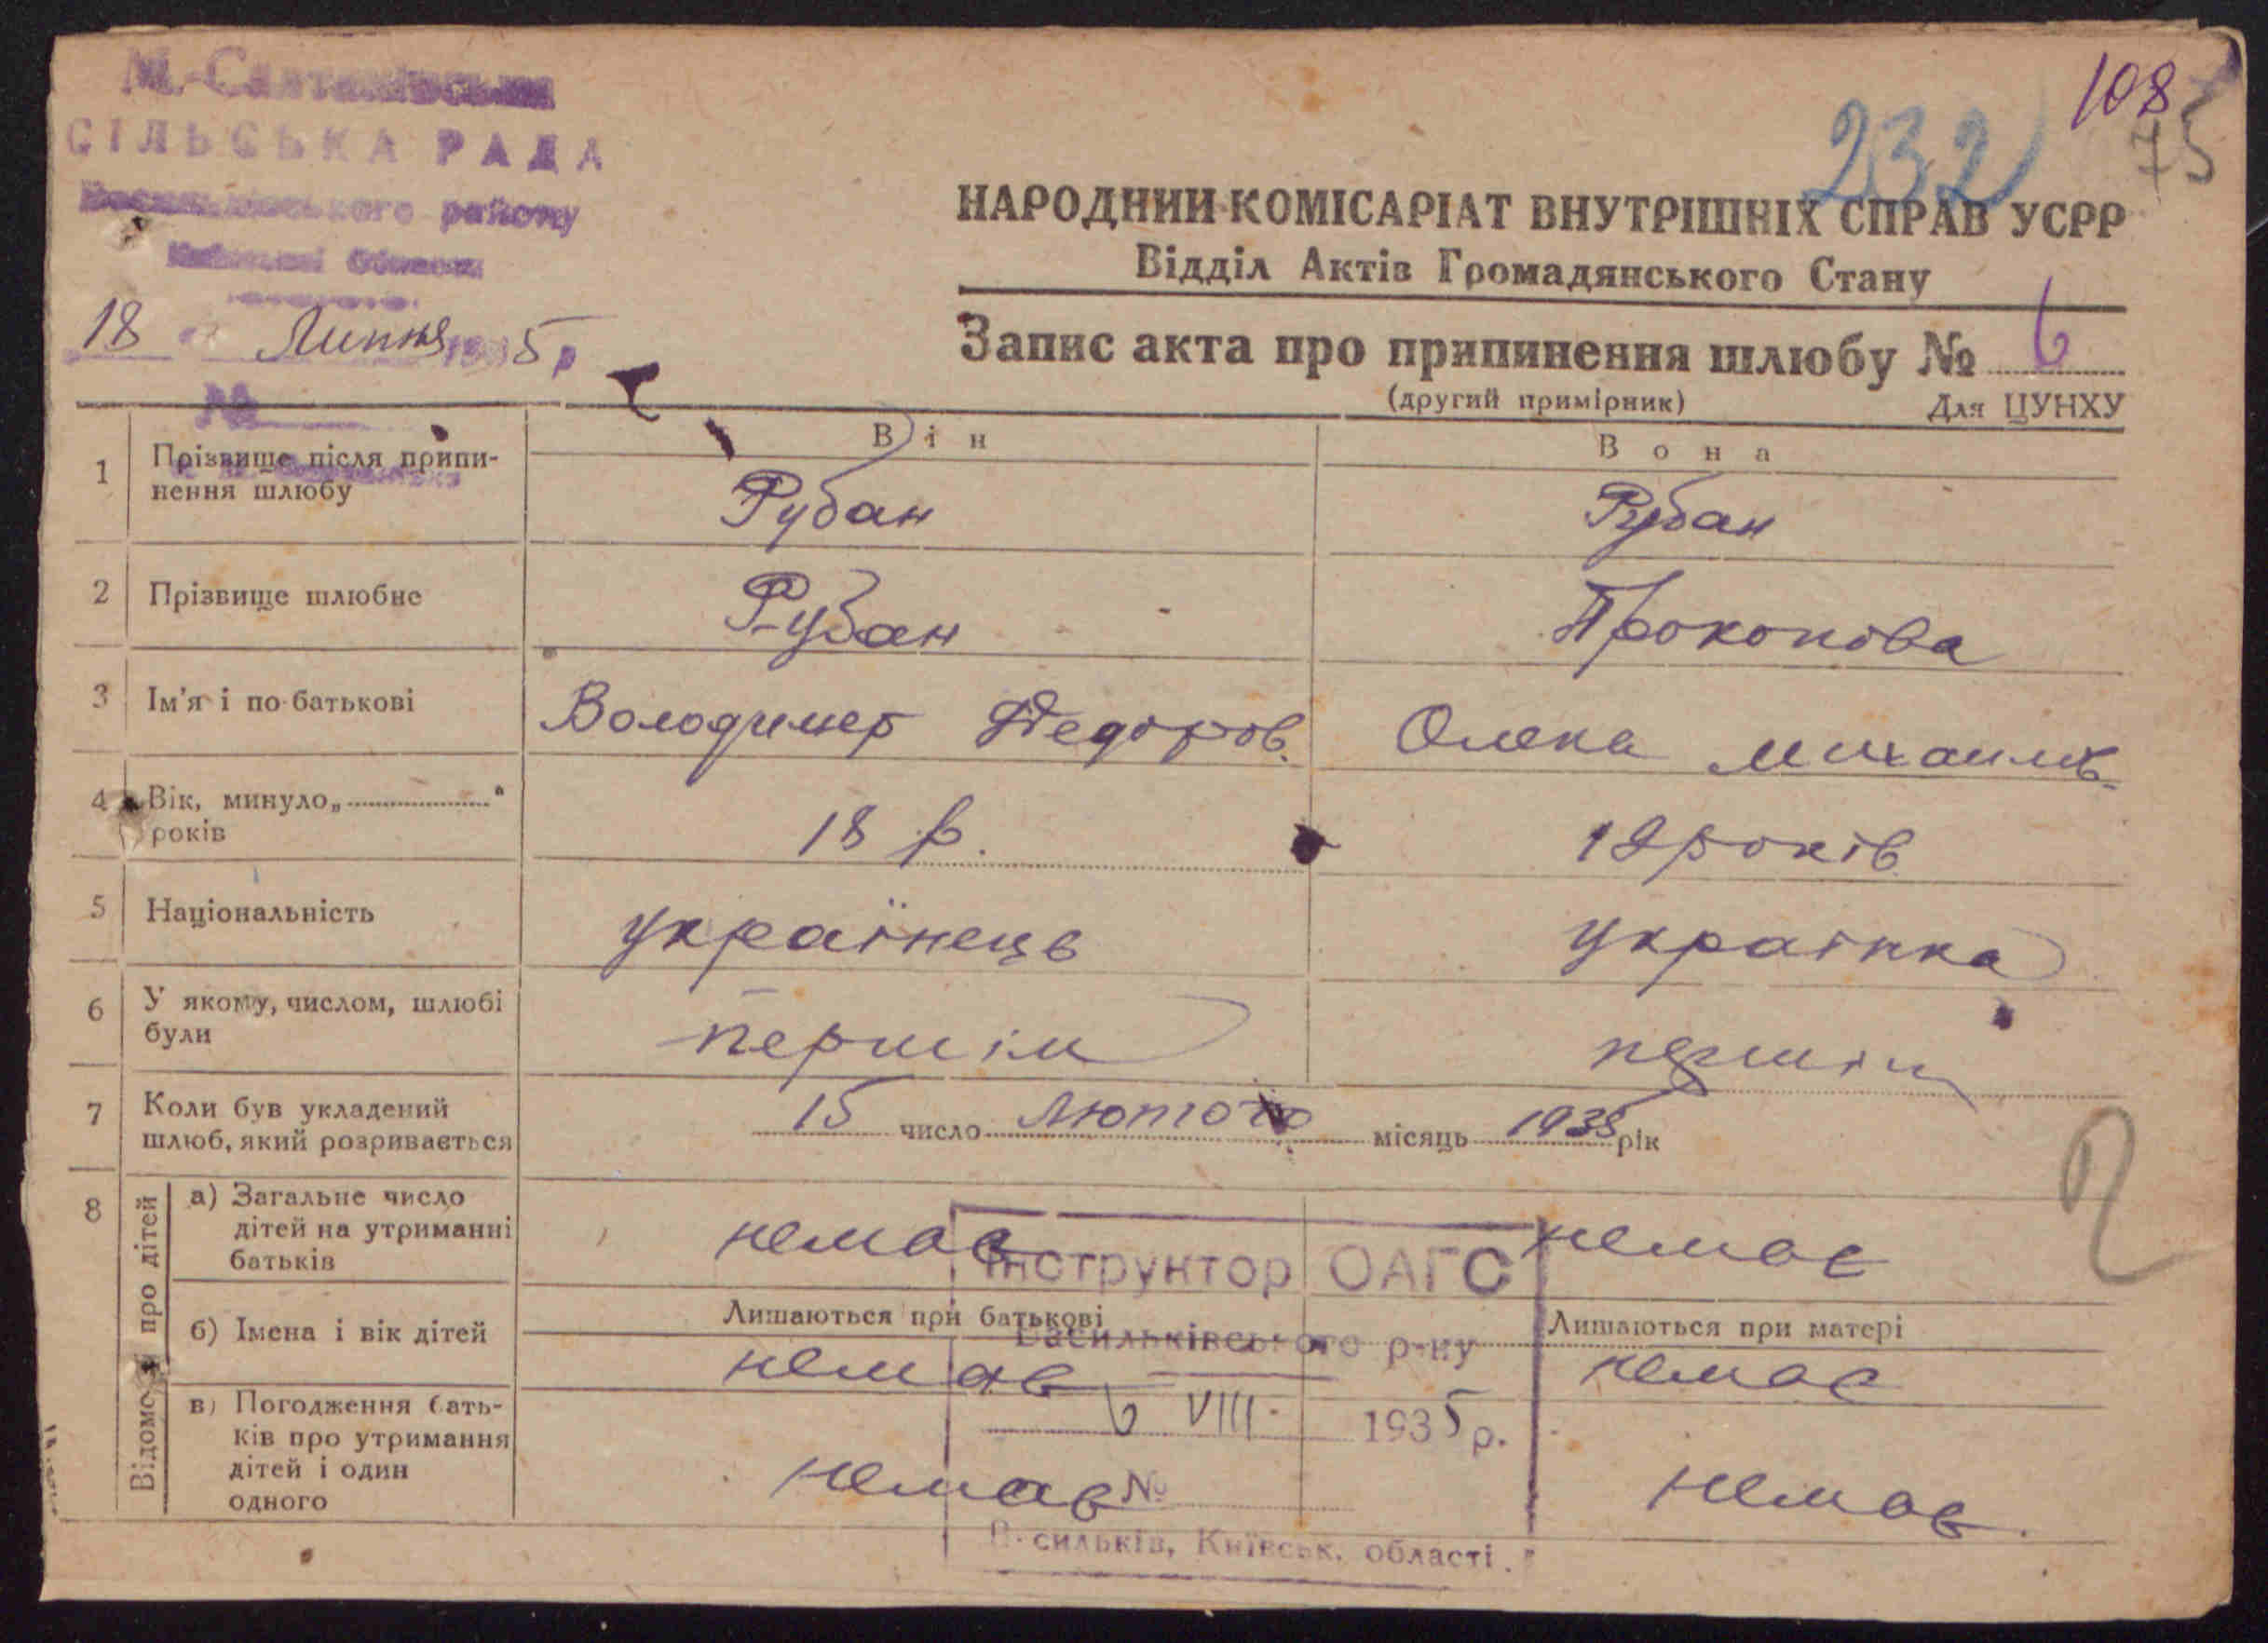 М.-Салтанівська
СІЛЬСЬКА РАДА
Васильківського району
Київської Области
18 Липня 1935 р
№
108
75
232
НАРОДНИЙ КОМІСАРІАТ ВНУТРІШНІХ СПРАВ УСРР
Відділ Актів Громадянського Стану
Запис акта про припинення шлюбу № 6
(другий примірник) Для ЦУНХУ
Він Вона
1 Прізвище після припи-
нення шлюбу Рубан Рубан
2 Прізвище шлюбне Рубан Прокопова
3 Ім'я і по-батькові Володимер Федоров. Олена Михаилів.
4 Вік, минуло „ “
років 18 р. 19 років
5 Національність українець украінка
6 У якому, числом, шлюбі
були першім першім
7 Коли був укладений
шлюб, який розривається 15 число Лютого місяць 1935 рік
8 Відомості про дітей
а) Загальне число
дітей на утриманні
батьків немає немає
Інструктор ОАГС
Лишаються при батькові Лишаються при матері
б) Імена і вік дітей
Васильківського р-ну
немає немає
6 VIII 1935 р.
в) Погодження бать-
ків про утримання
дітей і один
одного немає немає.
№
Васильків, Київськ. області.